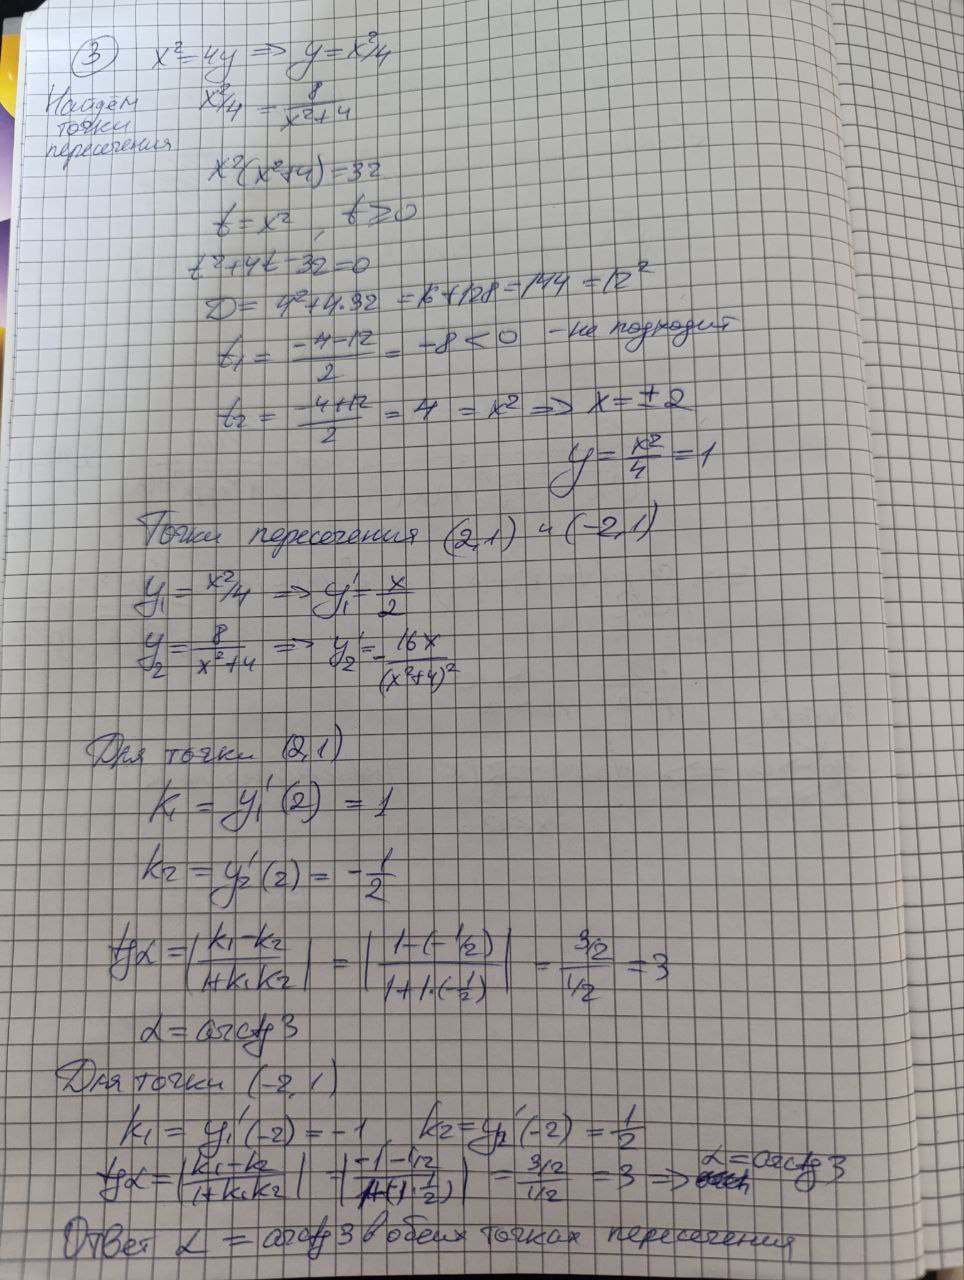 ③ x² = 4y => y = x²/4
Найдём точки пересечения
x²/4 = 8/(x²+4)
x²(x²+4) = 32
t = x², t ≥ 0
t² + 4t - 32 = 0
D = 4² + 4·32 = 16 + 128 = 144 = 12²
t₁ = (-4-12)/2 = -8 < 0 - не подходит
t₂ = (-4+12)/2 = 4 = x² => x = ±2
y = x²/4 = 1
Точки пересечения (2,1) и (-2,1)
y₁ = x²/4 => y₁' = x/2
y₂ = 8/(x²+4) => y₂' = -16x/(x²+4)²
Для точки (2,1)
k₁ = y₁'(2) = 1
k₂ = y₂'(2) = -1/2
tgα = |(k₁-k₂)/(1+k₁k₂)| = |(1-(-1/2))/(1+1·(-1/2))| = (3/2)/(1/2) = 3
α = arctg 3
Для точки (-2,1)
k₁ = y₁'(-2) = -1 k₂ = y₂'(-2) = 1/2
tgα = |(k₁-k₂)/(1+k₁k₂)| = |(-1-1/2)/(1+(-1·1/2))| = (3/2)/(1/2) = 3 => α = arctg 3
Ответ α = arctg 3 в обеих точках пересечения